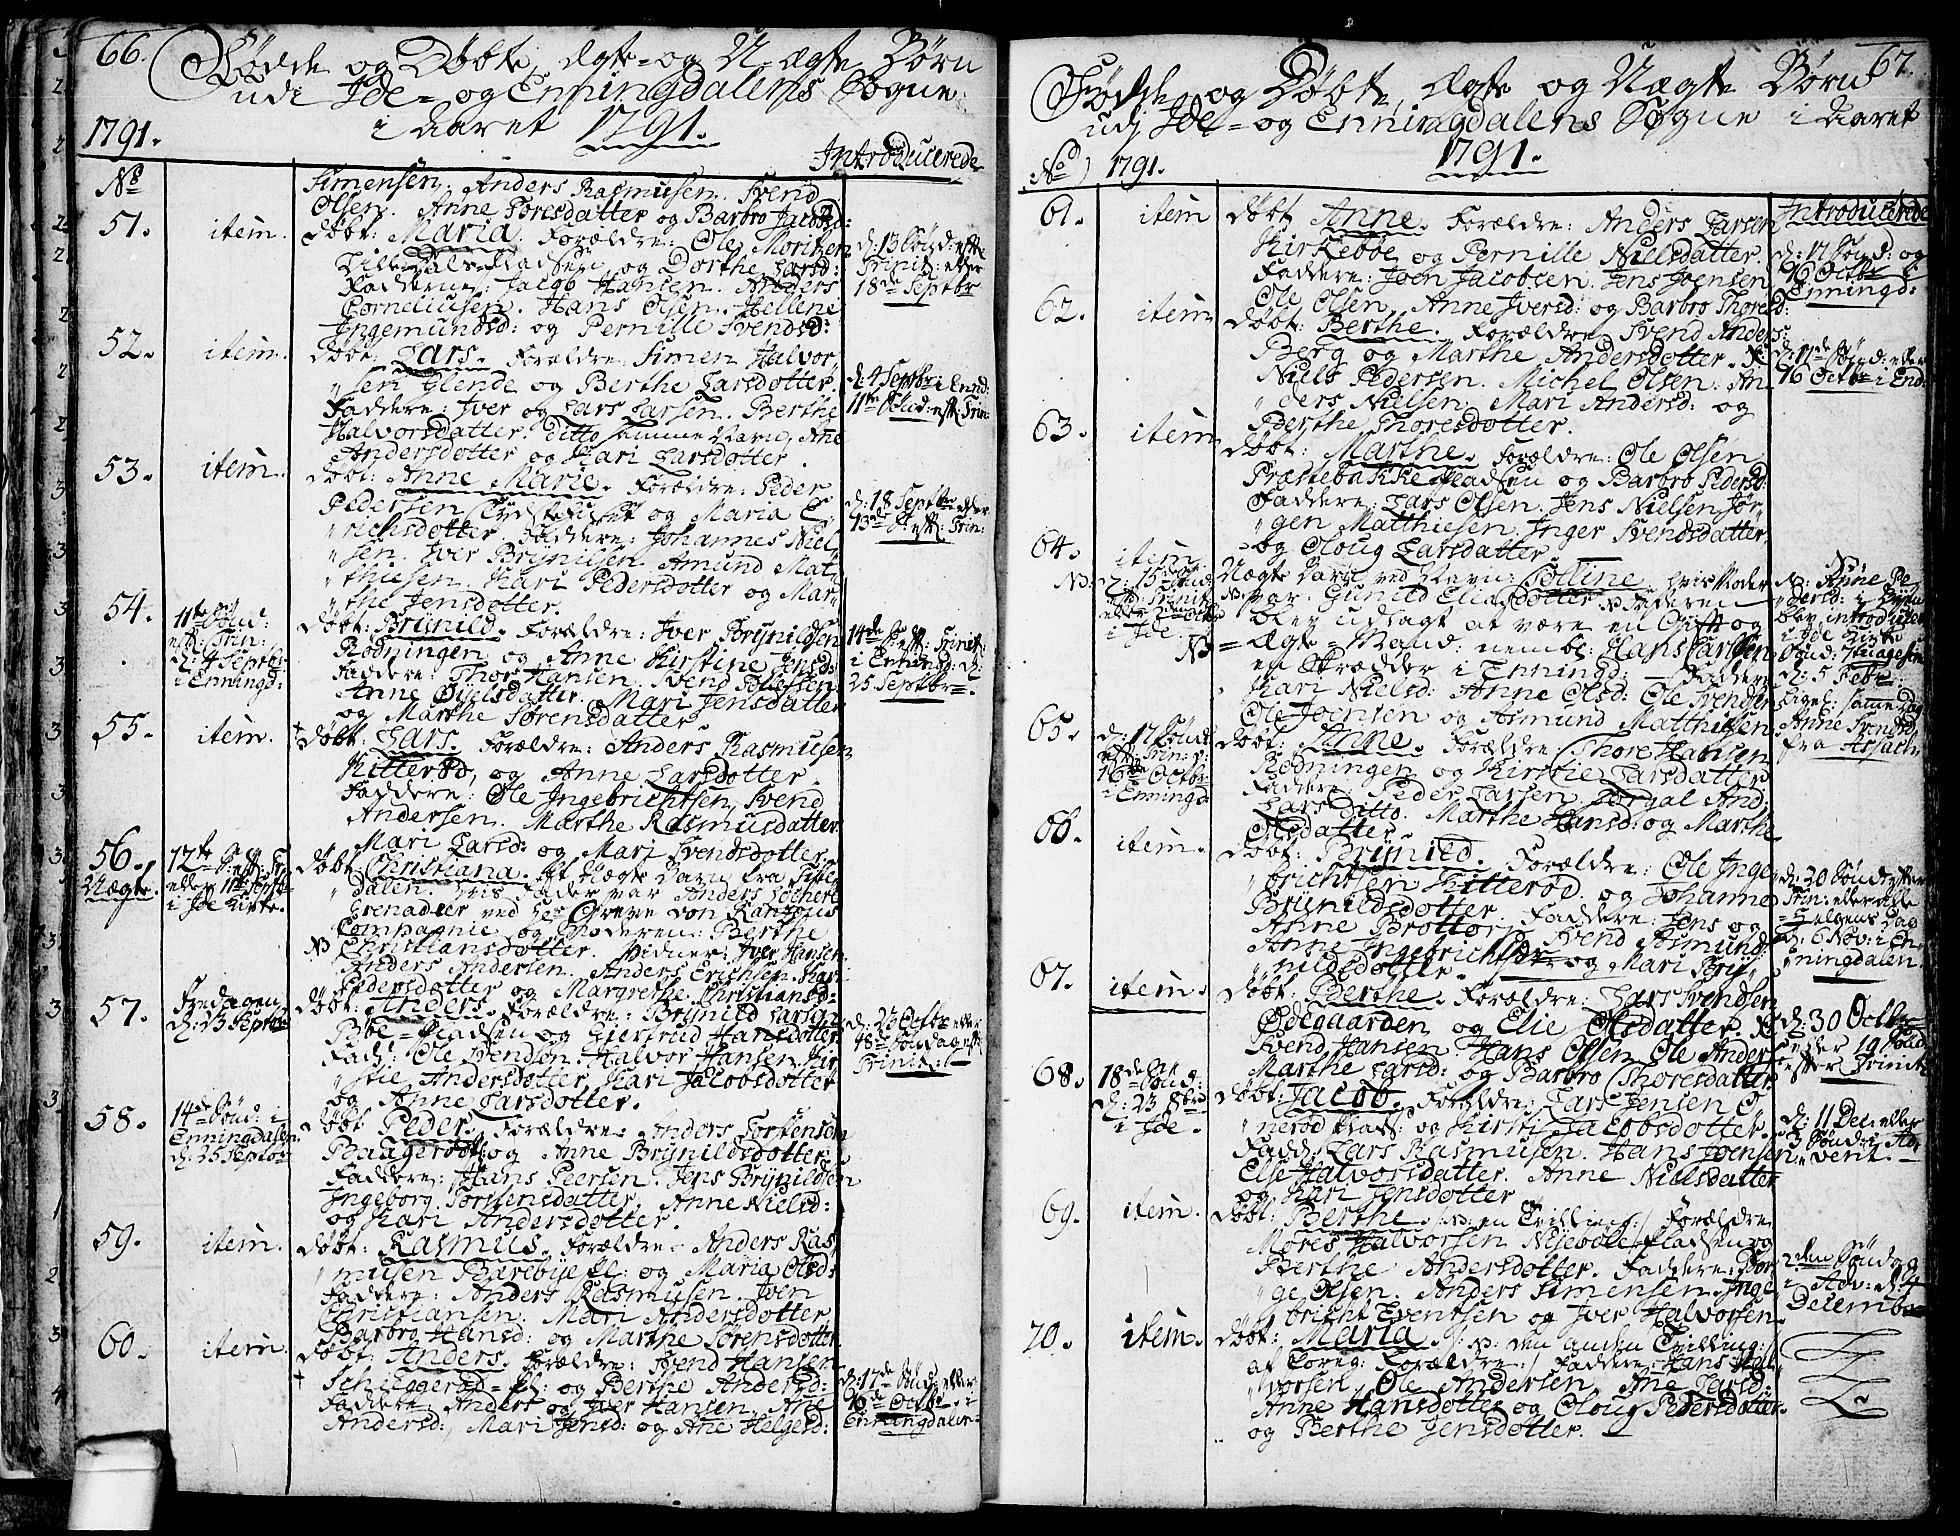 66.
Fødde og Døbte, Ægte- og U-ægte Børn
udi Ide- og Enningdalens Sogne
i Aaret 1791.
1791.
Introducerede
No
Simensen. Anders Rasmusen. Svend
Olsen. Anne Toresdatter og Barbro Jacobsd:
51. item. døbt: Maria. Forældre: Ole Moritzen
Pladsen og Dorthe Larsd:
Faddere: Jacob Hansen. Anders
Corneliusen. Hans Olsen. Helleni
Ingemundsd: og Pernille Svendsd:
d: 13 Sønd: eft:
Trinit: eller
18de Septbr
52. item. døbt: Lars. Forældre: Simen Halvor
sen Glende og Berthe Larsdotter.
Faddere: Iver og Lars Larsen. Berthe
Halvorsdatter. Ditto samme Navn, Ane
Andersdotter og Kari Larsdotter.
d: 4 Septbr: i Ennd:
11te Sønd: eft: Trin:
53. item. døbt: Anne Marie. Forældre: Peder
Pedersen og Maria E
richsdotter. Faddere: Johannes Niel
sen. Iver Brynilsen. Amund Mat
thiesen. Kari Pedersdotter og Mar
the Jensdotter.
d: 18 Septbr eller
13de S: eft: Trin:
54. 11te Sønd:
eft: Trin:
d: 4 Septbr
i Enningd:
døbt: Brynild. Forældre: Iver Brynildsen
Rødningen og Anne Kirstine Jensd:
Faddere: Thor Hansen. Svend Tollefsen
Anne Ojelsdatter. Mari Jensdatter
og Marthe Sørensdatter
14de S: eft: Trinit:
i Enningd: d:
25 Septbr
55. item. døbt: Lars. Forældre: Anders Rasmusen
Kitterød, og Anne Larsdotter.
Faddere: Ole Ingebrichtsen, Svend
Andersen. Marthe Rasmusdatter
Mari Larsd: og Mari Svendsdotter
56.
Uægte.
12te S: eft: Tr:
eller 11te Septbr
i Ide Kirke.
døbt Christiana. Et Uægte Barn fra
dalen. Hvis Fader var Anders
Grenadeer ved Hr Greve von Rantzous
Compagnie og Moderen: Berthe
Christiansdotter. Vidner: Iver Hansen
Anders Andersen. Anders Erichsen. Kari
Pedersdotter og Margrethe Christiansd:
57. Fredagen
d: 23 Septbr
døbt: Anders. Forældre: Brynild Larsen
Bøe-Pladsen og Giertrud Hansdotter
Fadd: Ole Svendsen. Halvor Hansen. Kir
stie Andersdotter, Kari Jacobsdotter
og Anne Larsdotter.
d: 23 Octbr eller
18de Søndag eft:
Trinit:
58. 14de Sønd: i
Enningdalen
d: 25 Septbr
døbt Peder. Forældre: Anders Torstensen
Baagerød og Anne Brynildsdotter
Faddere: Hans Peersen. Jens Brynildsen
Ingeborg Torstensdatter. Anne Nielsd:
og Kari Andersdotter.
59. item. døbt: Rasmus. Forældre: Anders Ras
musen Bærebye Pl: og Maria Olsd:
Faddere: Anders Rasmusen. Joen
Christiansen. Mari Andersdotter
Barbro Hansd: og Marthe Sørensdotter
60. item. døbt: Anders. Forældre: Svend Hansen
Schieggerød-Pl: og Berthe Andersd:
Faddere: Anders og Iver Hansen. Ane
Andersd: Mari Jensd: og Ane Helgesd:
d: 17de Sønd: eller
16de Octbr i
Enningdalen
67.
Fødde og Døbte, Ægte og Uægte Børn
udj Ide- og Enningdalens Sogne i Aaret
1791.
No 1791.
Introducerede
61. item døbt Anne. Forældre: Anders Larsen
Kirkebøe og Pernille Nielsdatter.
Faddere: Joen Jacobsen. Jens Joensen
Ole Olsen, Anne Iversd: og Barbro Thoresd:
d: 17 Sønd: og
16 Octbr i
Enningd:
62. item døbt: Berthe. Forældre Svend Anders:
Berg og Marthe Andersdotter. F:
Niels Pedersen. Michel Olsen. An
ders Nielsen, Mari Andersd: og
Berthe Thoresdotter.
d: 17de Sønd: eller
16 Octbr i End:
63. item døbt: Marthe. Forældre: Ole Olsen
Præstebakke Pladsen og Barbro Pedersd:
Faddere: Lars Olsen. Jens Nielsen. Jør
gen Matthiesen. Inger Svendsdatter
og Oloug Larsdatter
64. item
NB d: 15 Sønd:
eft: Trinit:
eller 2den Octbr
i Ide.
Uægte Barn ved Navn: Golline. Hvis Moder
var Gunild Eliasdotter NB Faderen
blev udlagt at være en Gift og
Ægte-Mand: neml: Hans Larsen
en Skrædder i Enningd: Faddere
Kari Nielsd: Anne Olsd: Ole Svendsen
Ole Joensen og Asmund Matthiesen.
N: Anne Pe
dersd: i Byen
blev introducer:
i Ide Kirke
Sønd: Septuagesima
d: 5 Febr:
Ligel: samme Dag
Anne Svendsd:
fra
65. d: 17 Sønd:
eft: Trin:
16de Octbr
i Enningd
døbt: Anne. Forældre: Thore Hansen
Rødningen og Kirstie Larsdatter
Faddere: Peder Larsen. Torgal And:
Lars Ditto. Marthe Hansd: og Marthe
Olsdatter.
66. item. døbt: Brynild. Forældre: Ole Inge
brichtsen Kitterød og Johanne
Brynildsdotter. Faddere: Jens og
Anne Brottorp Svend Asmunds:
Anne Ingebrichtsdr og Mari Bry
nildsdotter.
d: 20 Sønd: efter
Trin: eller Alle
Helgens Dag
d: 6 Nov: i En
ningdalen.
67. item. døbt: Berthe. Forældre: Lars Svendsen
Ødegaarden og Elie Olsdatter. F:
Svend Hansen. Hans Olsen. Ole Anders:
Marthe Larsd: og Barbro Thoresdatter
d: 30 Octbr
eller 19 Sønd
efter Trinit:
68. 18de Sønd:
d: 23 8br
i Ide.
døbt: Jacob. Forældre: Lars Jensen O
nerød Plads: og Kirsti Jacobsdotter.
Fadd: Lars Rasmusen. Hans Joensen
Else Halvorsdatter. Anne Nielsdatter
og Kari Jensdotter
d: 11 Dec: eller
3 Sønd: i Ad
vent.
69. item. døbt: Berthe. /: NB: en Tvilling :/ Forældre
Mores Halvorsen Pladsen og
Berthe Andersdotter. Faddere: Bør
ge Olsen. Anders Simensen. Inge
bricht Eventsen og Iver Halvorsen.
2den Søndag
i Adv: d: 4
Decembr
70. item. døbt: Maria. /: NB: den anden Tvilling:
af Foreg: Forældre :/ Faddere: Hans Hal
vorsen, Ole Andersen. Ane Larsd:
Anne Hansdotter og Oloug Pedersdotter.
og Berthe Jensdotter.